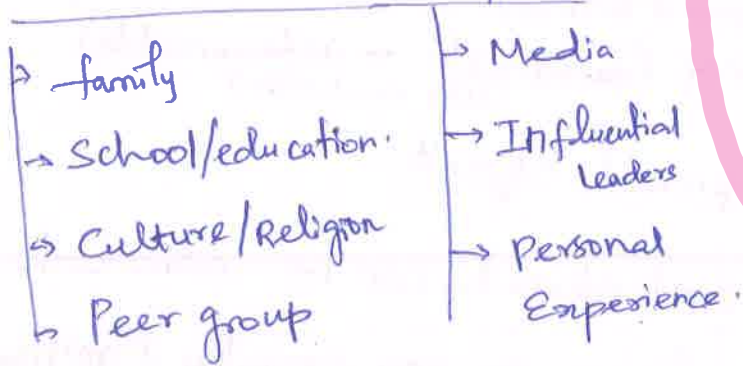 → family
→ School/education.
→ Culture/Religion
→ Peer group
→ Media
→ Influential
Leaders
→ Personal
Experience.